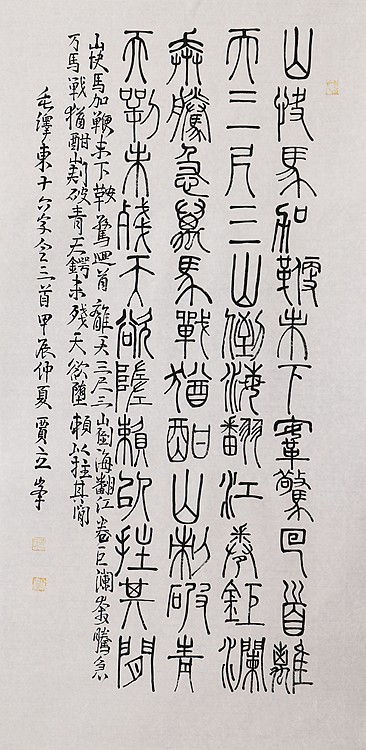 山快馬加鞭未下鞌驚回首離
天三尺三山倒海翻江卷鉅瀾
奔騰急萬馬戰猶酣山刺破青
天鍔未殘天欲墮賴以拄其間
山快馬加鞭未下鞍驚迴首離天三尺三山倒海翻江卷巨瀾奔騰急
万馬戰猶酣山刺破青天鍔未殘天欲墮賴以拄其間
毛澤東十六字令三首甲辰仲夏賈立峯